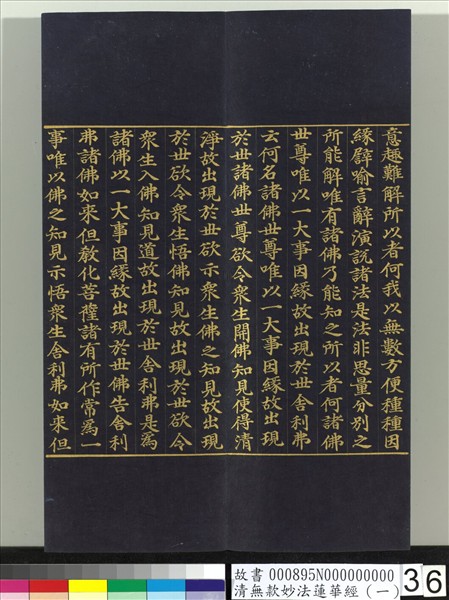 意趣難解所以者何我以無數方便種種因
緣譬喻言辭演說諸法是法非思量分別之
所能解唯有諸佛乃能知之所以者何諸佛
世尊唯以一大事因緣故出現於世舍利弗
云何名諸佛世尊唯以一大事因緣故出現
於世諸佛世尊欲令衆生開佛知見使得清
淨故出現於世欲示衆生佛之知見故出現
於世欲令衆生悟佛知見故出現於世欲令
衆生入佛知見道故出現於世舍利弗是為
諸佛以一大事因緣故出現於世佛告舍利
弗諸佛如來但教化菩薩諸有所作常為一
事唯以佛之知見示悟衆生舍利弗如來但
故書 000895N000000000
清無款妙法蓮華經（一）
36